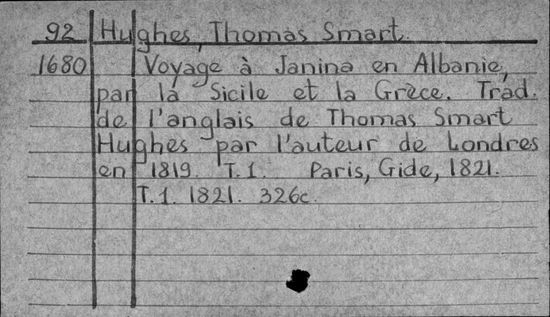 92 Hughes, Thomas Smart.
1680 Voyage à Janina en Albanie,
par la Sicile et la Grèce. Trad.
de l'anglais de Thomas Smart
Hughes par l'auteur de Londres
en 1819. T.1. Paris, Gide, 1821.
T.1. 1821. 326c.